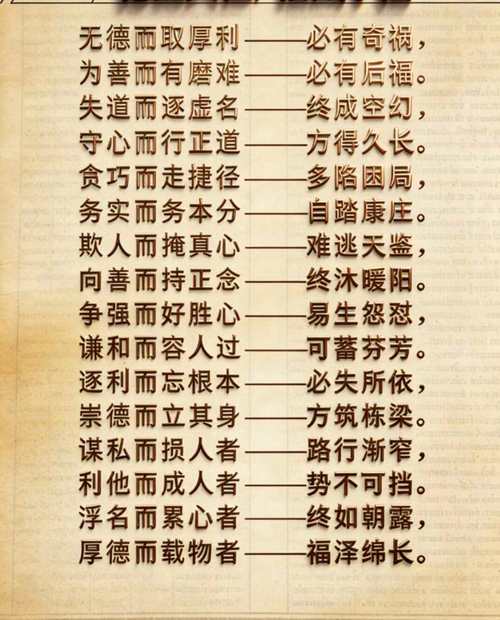 无德而取厚利——必有奇祸，
为善而有磨难——必有后福。
失道而逐虚名——终成空幻，
守心而行正道——方得久长。
贪巧而走捷径——多陷困局，
务实而务本分——自踏康庄。
欺人而掩真心——难逃天鉴，
向善而持正念——终沐暖阳。
争强而好胜心——易生怨怼，
谦和而容人过——可蓄芬芳。
逐利而忘根本——必失所依，
崇德而立其身——方筑栋梁。
谋私而损人者——路行渐窄，
利他而成人者——势不可挡。
浮名而累心者——终如朝露，
厚德而载物者——福泽绵长。